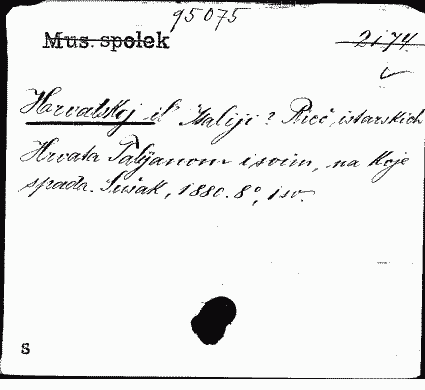 95075
Mus. spolek 2174.
Hrvatskoj il' Italiji? Rieč istarskich
Hrvata Talijanom i svim, na koje
spada. Sušak, 1880. 8°, 1 sv.
S